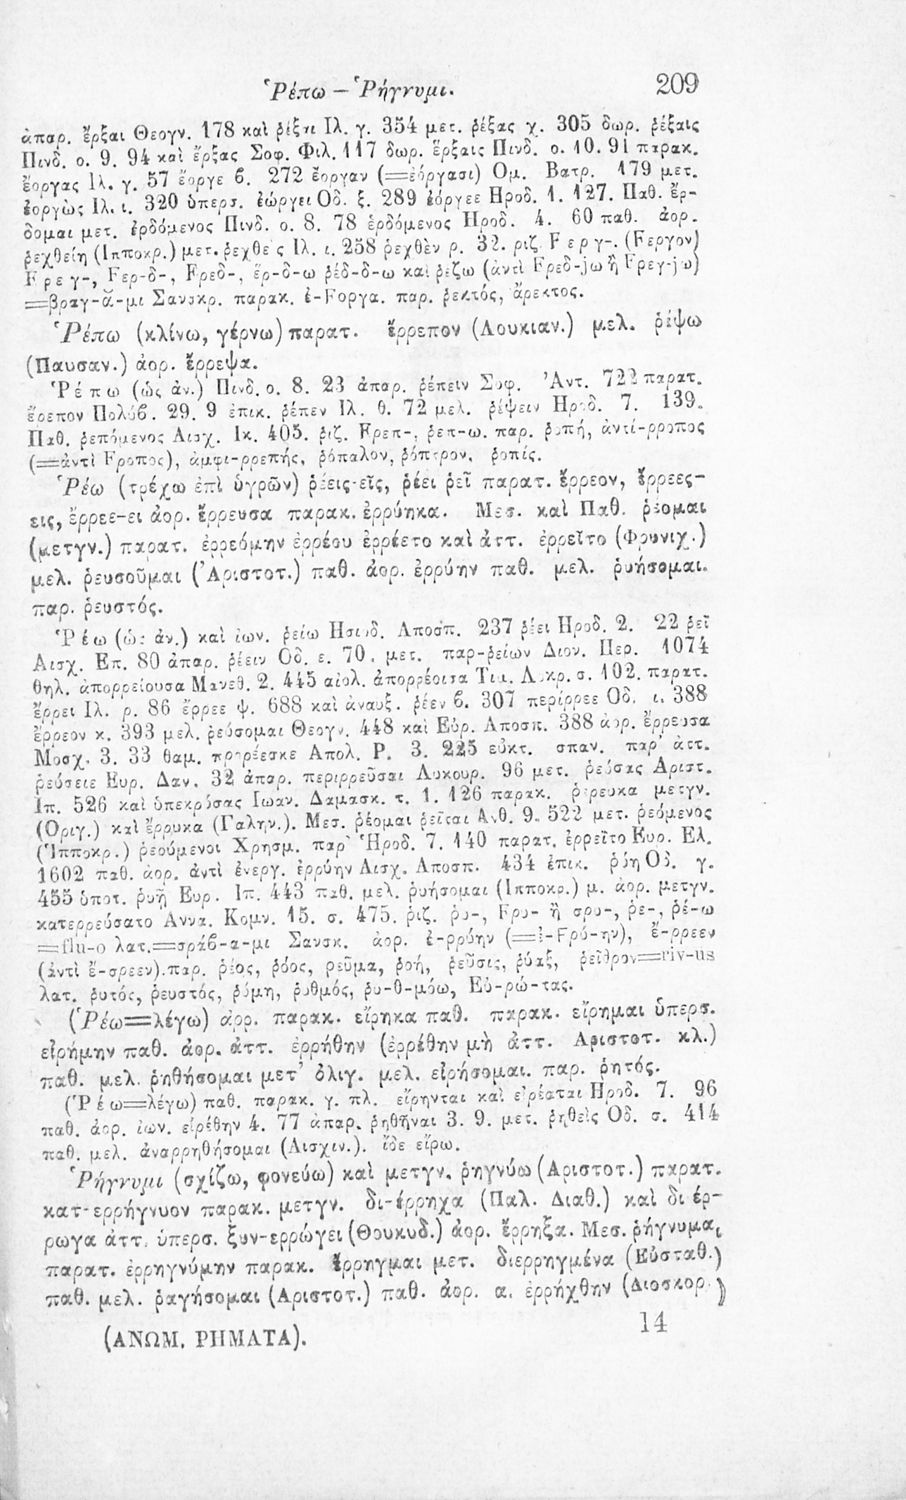 Ῥέπω – Ῥήγνυμι. 209
ἀπαρ. ἔρξαι Θεογν. 178 καὶ ῥέξαι Ἰλ. γ. 354 μετ. ῥέξας χ. 305 δωρ. ῥέξαις
Πινδ. ο. 9. 94 καὶ ἔρξας Σοφ. Φιλ. 117 δωρ. ἔρξαις Πινδ. ο. 10. 91 παρακ.
ἔοργας Ἰλ. γ. 57 ἔοργε 6. 272 ἔοργαν (=ἐόργασι) Ὁμ. Βατρ. 179 μετ.
ἐοργὼς Ἰλ. ι. 320 ὑπερσ. ἐώργει Ὀδ. ξ. 289 ἐόργεε Ηροδ. 1. 127. Παθ. ἔρ-
δομαι μετ. ἐρδόμενος Πινδ. ο. 8. 78 ἐρδόμενος Ηροδ. 4. 60 παθ. ἀορ.
ῥεχθείη (Ιπποκρ.) μετ. ῥεχθεὶς Ἰλ. ι. 258 ῥεχθὲν ρ. 32. ριζ. Ϝεργ-. (Ϝεργον)
Ϝρεγ-, Ϝερ-δ-, Ϝρεδ-, ἐρ-δ-ω ῥέδ-δ-ω καὶ ῥέζω (ἀντὶ Ϝρεδ-jω ἢ Ϝρεγ-jω)
=βραγ-ᾶ-μι Σανσκρ. παρακ. ἐ-Ϝοργα. παρ. ῥεκτός, ἄρεκτος.
Ῥέπω (κλίνω, γέρνω) παρατ. ἔρρεπον (Λουκιαν.) μελ. ῥέψω
(Παυσαν.) ἀορ. ἔρρεψα.
Ῥέπω (ὡς ἀν.) Πινδ. ο. 8. 23 ἀπαρ. ῥέπειν Σοφ. Ἀντ. 722 παρατ.
ἔρεπον Πολύβ. 29. 9 ἐπικ. ῥέπεν Ἰλ. θ. 72 μελ. ῥέψειν Ηροδ. 7. 139.
Παθ. ῥεπόμενος Αισχ. Ικ. 405. ῥιζ. Ϝρεπ-, ῥεπ-ω. παρ. ῥοπή, ἀντί-ρροπος
(=ἀντὶ Ϝροπος), ἀμφι-ρρεπής, ῥόπαλον, ῥόπτρον, ῥοπίς.
Ῥέω (τρέχω ἐπὶ ὑγρῶν) ῥέεις-εῖς, ῥέει ῥεῖ παρατ. ἔρρεον, ἔρρεες-
εις, ἔρρεε-ει ἀορ. ἔρρευσα παρακ. ἐρρύηκα. Μεσ. καὶ Παθ. ῥέομαι
(μετγν.) παρατ. ἐρρεόμην ἐρρέου ἐρρέετο καὶ ἀττ. ἐρρεῖτο (Φρυνιχ.)
μελ. ῥευσοῦμαι (Ἀριστοτ.) παθ. ἀορ. ἐρρύην παθ. μελ. ῥυήσομαι.
παρ. ῥευστός.
Ῥέω (ὡς ἀν.) καὶ ἰων. ῥείω Ησιοδ. Αποσπ. 237 ῥέει Ηροδ. 2. 22 ῥεῖ
Αισχ. Επ. 80 ἀπαρ. ῥέειν Οδ. ε. 70. μετ. παρ-ρείων Διον. Περ. 1074
θηλ. ἀπορρείουσα Μανεθ. 2. 445 αἰολ. ἀπορρέοισα Τιμ. Λοκρ. σ. 102. παρατ.
ἔρρει Ἰλ. ρ. 86 ἔρρεε ψ. 688 καὶ ἀναυξ. ῥέεν 6. 307 περίρρεε Οδ. ι. 388
ἔρρεον κ. 393 μελ. ῥεύσομαι Θεογν. 448 καὶ Εὐρ. Αποσπ. 388 ἀορ. ἔρρευσα
Μοσχ. 3. 33 θαμ. προρέεσκε Απολ. Ρ. 3. 225 εὐκτ. σπαν. παρ' ἀττ.
ῥεύσειε Ευρ. Δαν. 32 ἀπαρ. περιρρεῦσαι Λυκουρ. 96 μετ. ῥεύσας Αριστ.
Ιπ. 526 καὶ ὑπεκρύσας Ιωαν. Δαμασκ. τ. 1. 126 παρακ. ῥέρευκα μετγν.
(Οριγ.) καὶ ἔρρυκα (Γαλην.). Μεσ. ῥέομαι ῥεῖται Ἀνθ. 9. 522 μετ. ῥεόμενος
(Ἱπποκρ.) ῥεούμενοι Χρησμ. παρ' Ἡροδ. 7. 140 παρατ. ἐρρεῖτο Ευρ. Ελ.
1602 παθ. ἀορ. ἀντὶ ἐνεργ. ἐρρύην Αισχ. Αποσπ. 434 ἐπικ. ῥύη Οδ. γ.
455 ὑποτ. ῥυῇ Ευρ. Ιπ. 443 παθ. μελ. ῥυήσομαι (Ιπποκρ.) μ. ἀορ. μετγν.
κατερρεύσατο Αννα. Κομν. 15. σ. 475. ῥιζ. ῥυ-, Ϝρυ- ἢ σρυ-, ῥε-, ῥέ-ω
=flu-o λατ.=σράβ-α-μι Σανσκ. ἀορ. ἐ-ρρύην (=ἐ-Ϝρύ-ην), ἔ-ρρεεν
(ἀντὶ ἔ-σρεεν). παρ. ῥέος, ῥόος, ρεῦμα, ῥοή, ῥεῦσις, ῥύαξ, ῥεῖθρον=riv-us
λατ. ῥυτός, ῥευστός, ῥύμη, ῥυθμός, ῥυ-θ-μόω, Εὐ-ρώ-τας.
(Ῥέω=λέγω) ἀορ. παρακ. εἴρηκα παθ. παρακ. εἴρημαι ὑπερσ.
εἰρήμην παθ. ἀορ. ἀττ. ἐρρήθην (ἐρρέθην μὴ ἀττ. Αριστοτ. κλ.)
παθ. μελ. ῥηθήσομαι μετ' ὀλιγ. μελ. εἰρήσομαι. παρ. ῥητός.
(Ῥέω=λέγω) παθ. παρακ. γ. πλ. εἴρηνται καὶ εἰρέαται Ηροδ. 7. 96
παθ. ἀορ. ἰων. εἰρέθην 4. 77 ἀπαρ. ῥηθῆναι 3. 9. μετ. ῥηθεὶς Οδ. σ. 414
παθ. μελ. ἀναρρηθήσομαι (Αισχιν.). ἴδε εἴρω.
Ῥήγνυμι (σχίζω, φονεύω) καὶ μετγν. ῥηγνύω (Αριστοτ.) παρατ.
κατ-ερρήγνυον παρακ. μετγν. δι-έρρηχα (Παλ. Διαθ.) καὶ δι έρ-
ρωγα ἀττ. ὑπερσ. ξυν-ερρώγει (Θουκυδ.) ἀορ. ἔρρηξα. Μεσ. ῥήγνυμαι
παρατ. ἐρρηγνύμην παρακ. ἔρρηγμαι μετ. διερρηγμένα (Εὐσταθ.)
παθ. μελ. ῥαγήσομαι (Αριστοτ.) παθ. ἀορ. α. ἐρρήχθην (Διοσκορ.)
(ΑΝΩΜ. ΡΗΜΑΤΑ). 14